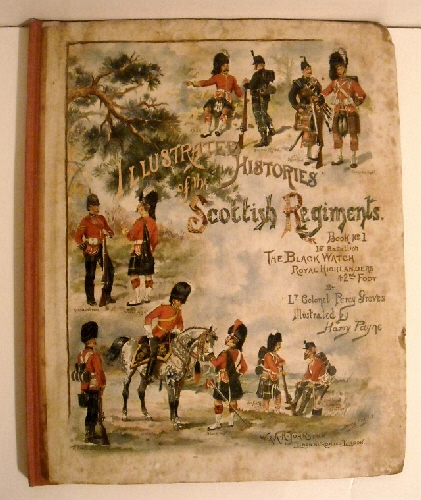 ILLUSTRATED HISTORIES
of the
Scottish Regiments.
Book No 1
1st Battalion
THE BLACK WATCH
ROYAL HIGHLANDERS
42nd FOOT
By
Lt Colonel Percy Groves
Illustrated by
Harry Payne
W. & A.K. JOHNSTON